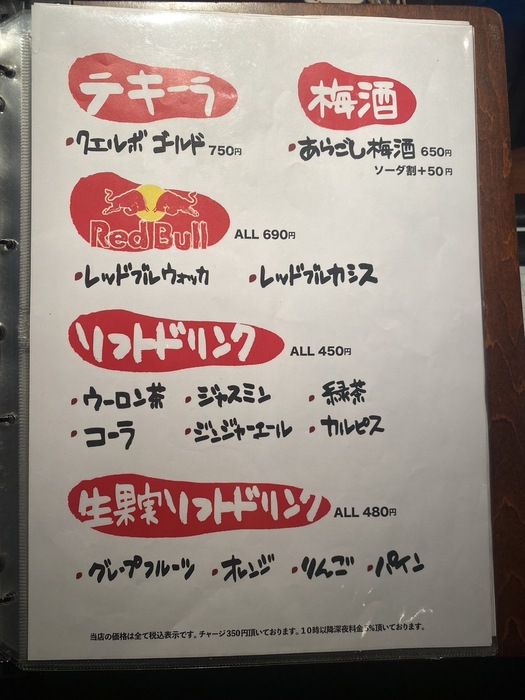 テキーラ
・クエルボ ゴールド 750円
梅酒
・あらごし梅酒 650円
ソーダ割+50円
RedBull ALL 690円
・レッドブルウォッカ ・レッドブルカシス
ソフトドリンク ALL 450円
・ウーロン茶 ・ジャスミン ・緑茶
・コーラ ・ジンジャーエール ・カルピス
生果実ソフトドリンク ALL 480円
・グレープフルーツ ・オレンジ ・りんご ・パイン
当店の価格は全て税込表示です。チャージ350円頂いております。10時以降深夜料金5%頂いております。